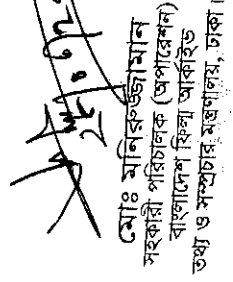 মোঃ মনিরুজ্জামান
সহকারী পরিচালক (অপারেশন)
বাংলাদেশ ফিল্ম আর্কাইভ
তথ্য ও সম্প্রচার মন্ত্রণালয়, ঢাকা।